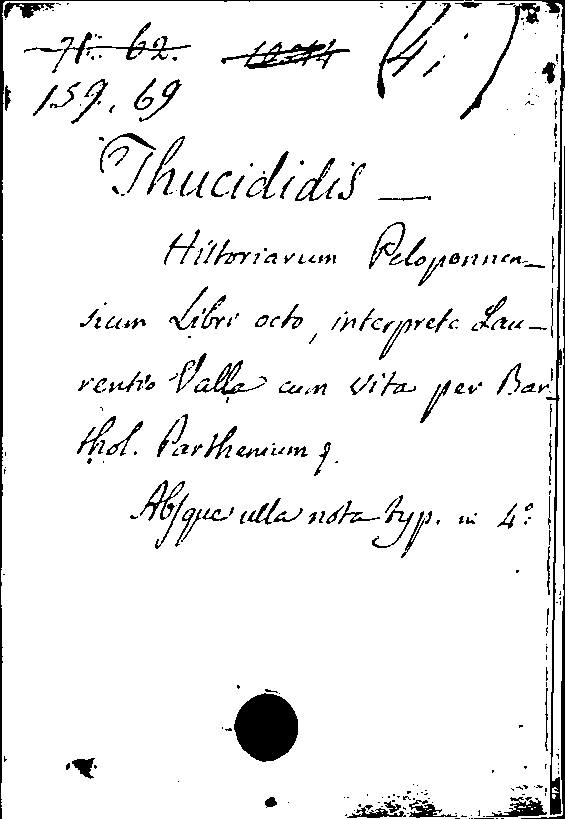 71. 62. (4.)
159. 69
Thucididis —
Historiarum Peloponnen-
sium Libri octo, interprete Lau-
rentio Valla cum vita per Bar-
thol. Parthenium
Absque ulla nota typ. in 4°